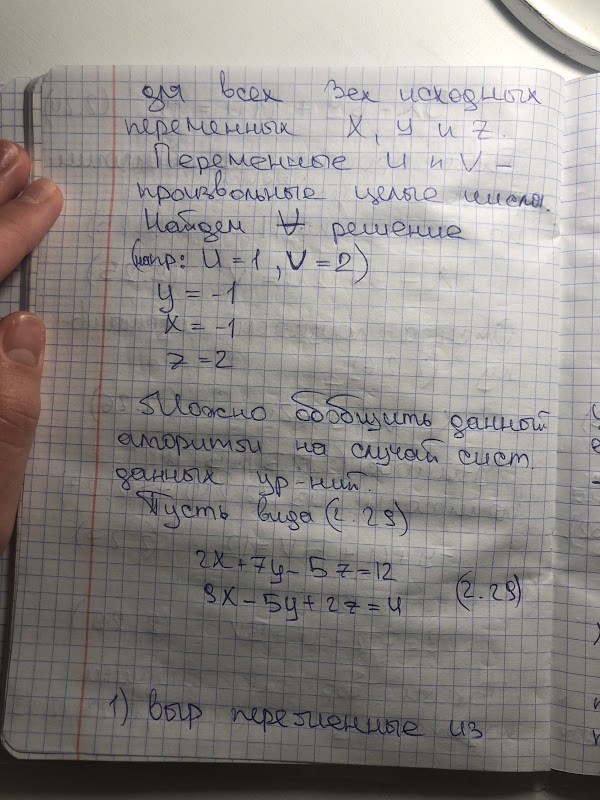 для всех 3ех исходных
переменных x, y и z.
Переменные u и v -
произвольные целые числа.
Найдем ∀ решение
(напр: u = 1, v = 2)
y = -1
x = -1
z = 2
Можно обобщить данный
алгоритм на случай сист.
данных ур-ний.
Пусть вида (2.29)
2x + 7y - 5z = 12
9x - 5y + 2z = 4 (2.29)
1) выр переменные из